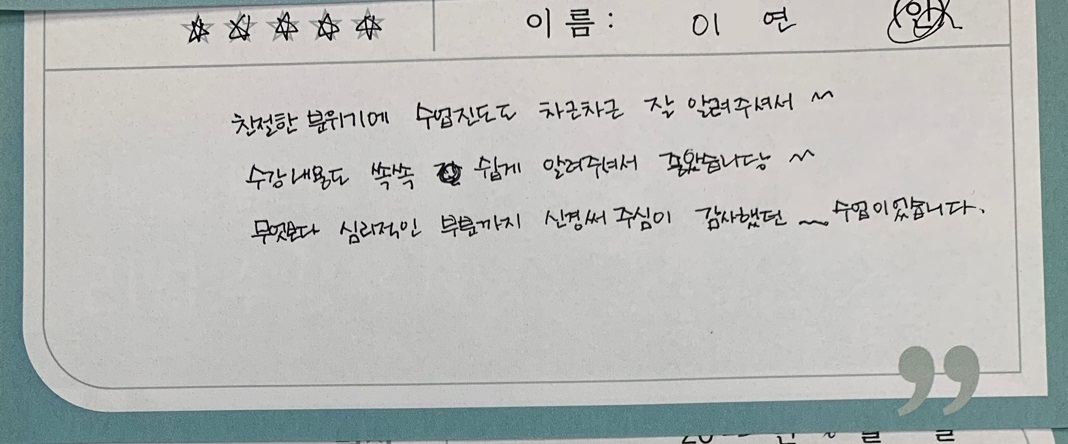 이름: 이 연
친절한 분위기에 수업진도도 차근차근 잘 알려주셔서 ~
수강내용도 쏙쏙 쉽게 알려주셔서 좋았습니다당 ~
무엇보다 심리적인 부분까지 신경써 주심이 감사했던 ~ 수업이었습니다.